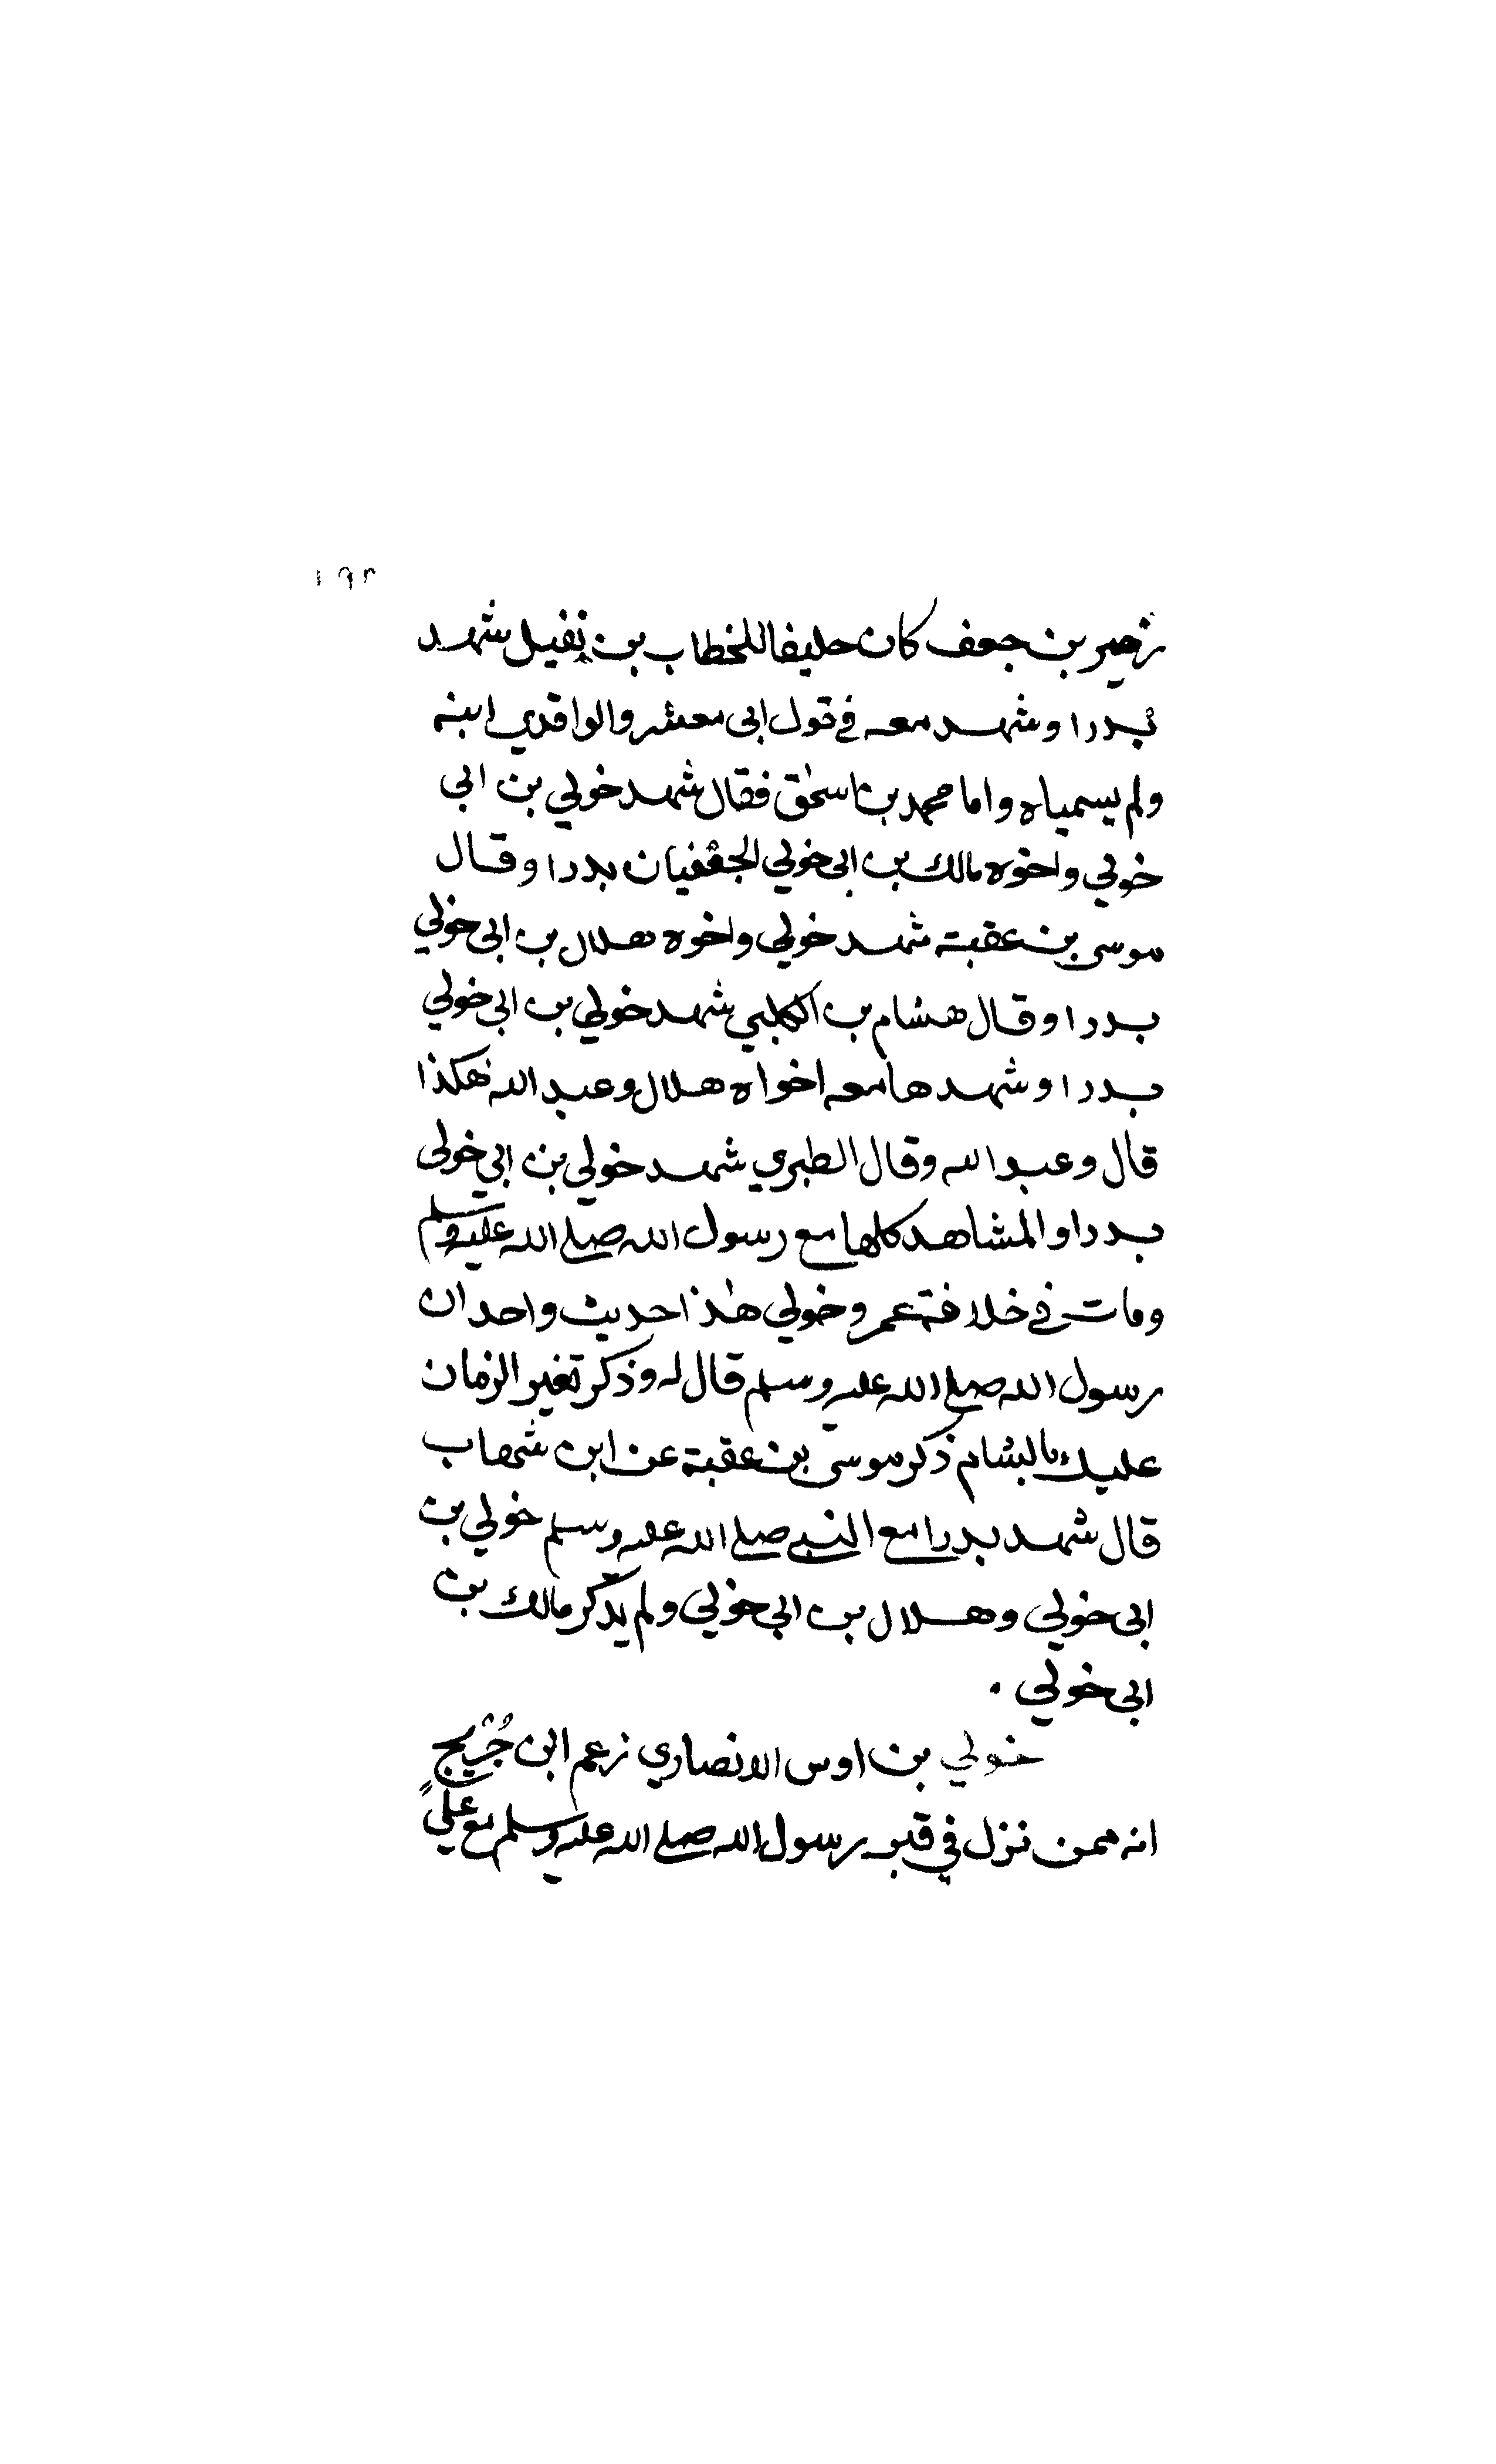 ١٩٢
زهير بن جعف كان حليفا للخطاب بن نفيل شهد
بدرا وشهد معه في قول ابى معشر والواقدي ابنه
ولم يسمياه واما محمد بن اسحٰق فقال شهد خولي بن ابي
خولي واخوه مالك بن ابى خولي الجعفيان بدرا وقال
موسى بن عقبة شهد خولي واخوه هلال بن ابى خولي
بدرا وقال هشام بن الكلبي شهد خولي بن ابى خولي
بدرا وشهدها معه اخواه هلال وعبد الله هكذا
قال وعبد الله وقال الطبري شهد خولي بن ابي خولى
بدرا والمشاهد كلها مع رسول الله صلى الله عليه وسلم
ومات في خلافة عمر وخولي هٰذا حديث واحد ان
رسول الله صلى الله عليه وسلم قال له وذكر تغير الزمان
عليك بالشام ذكر موسى بن عقبة عن ابن شهاب
قال شهد بدرا مع النبي صلى الله عليه وسلم خولي بن
ابى خولي وهلال بن ابى خولي ولم يذكر مالك بن
ابى خولي .
خولي بن اوس الانصاري زعم ابن جُرَيج
انه ممن نزل في قبر رسول الله صلى الله عليه وسلم مع عليٍّ